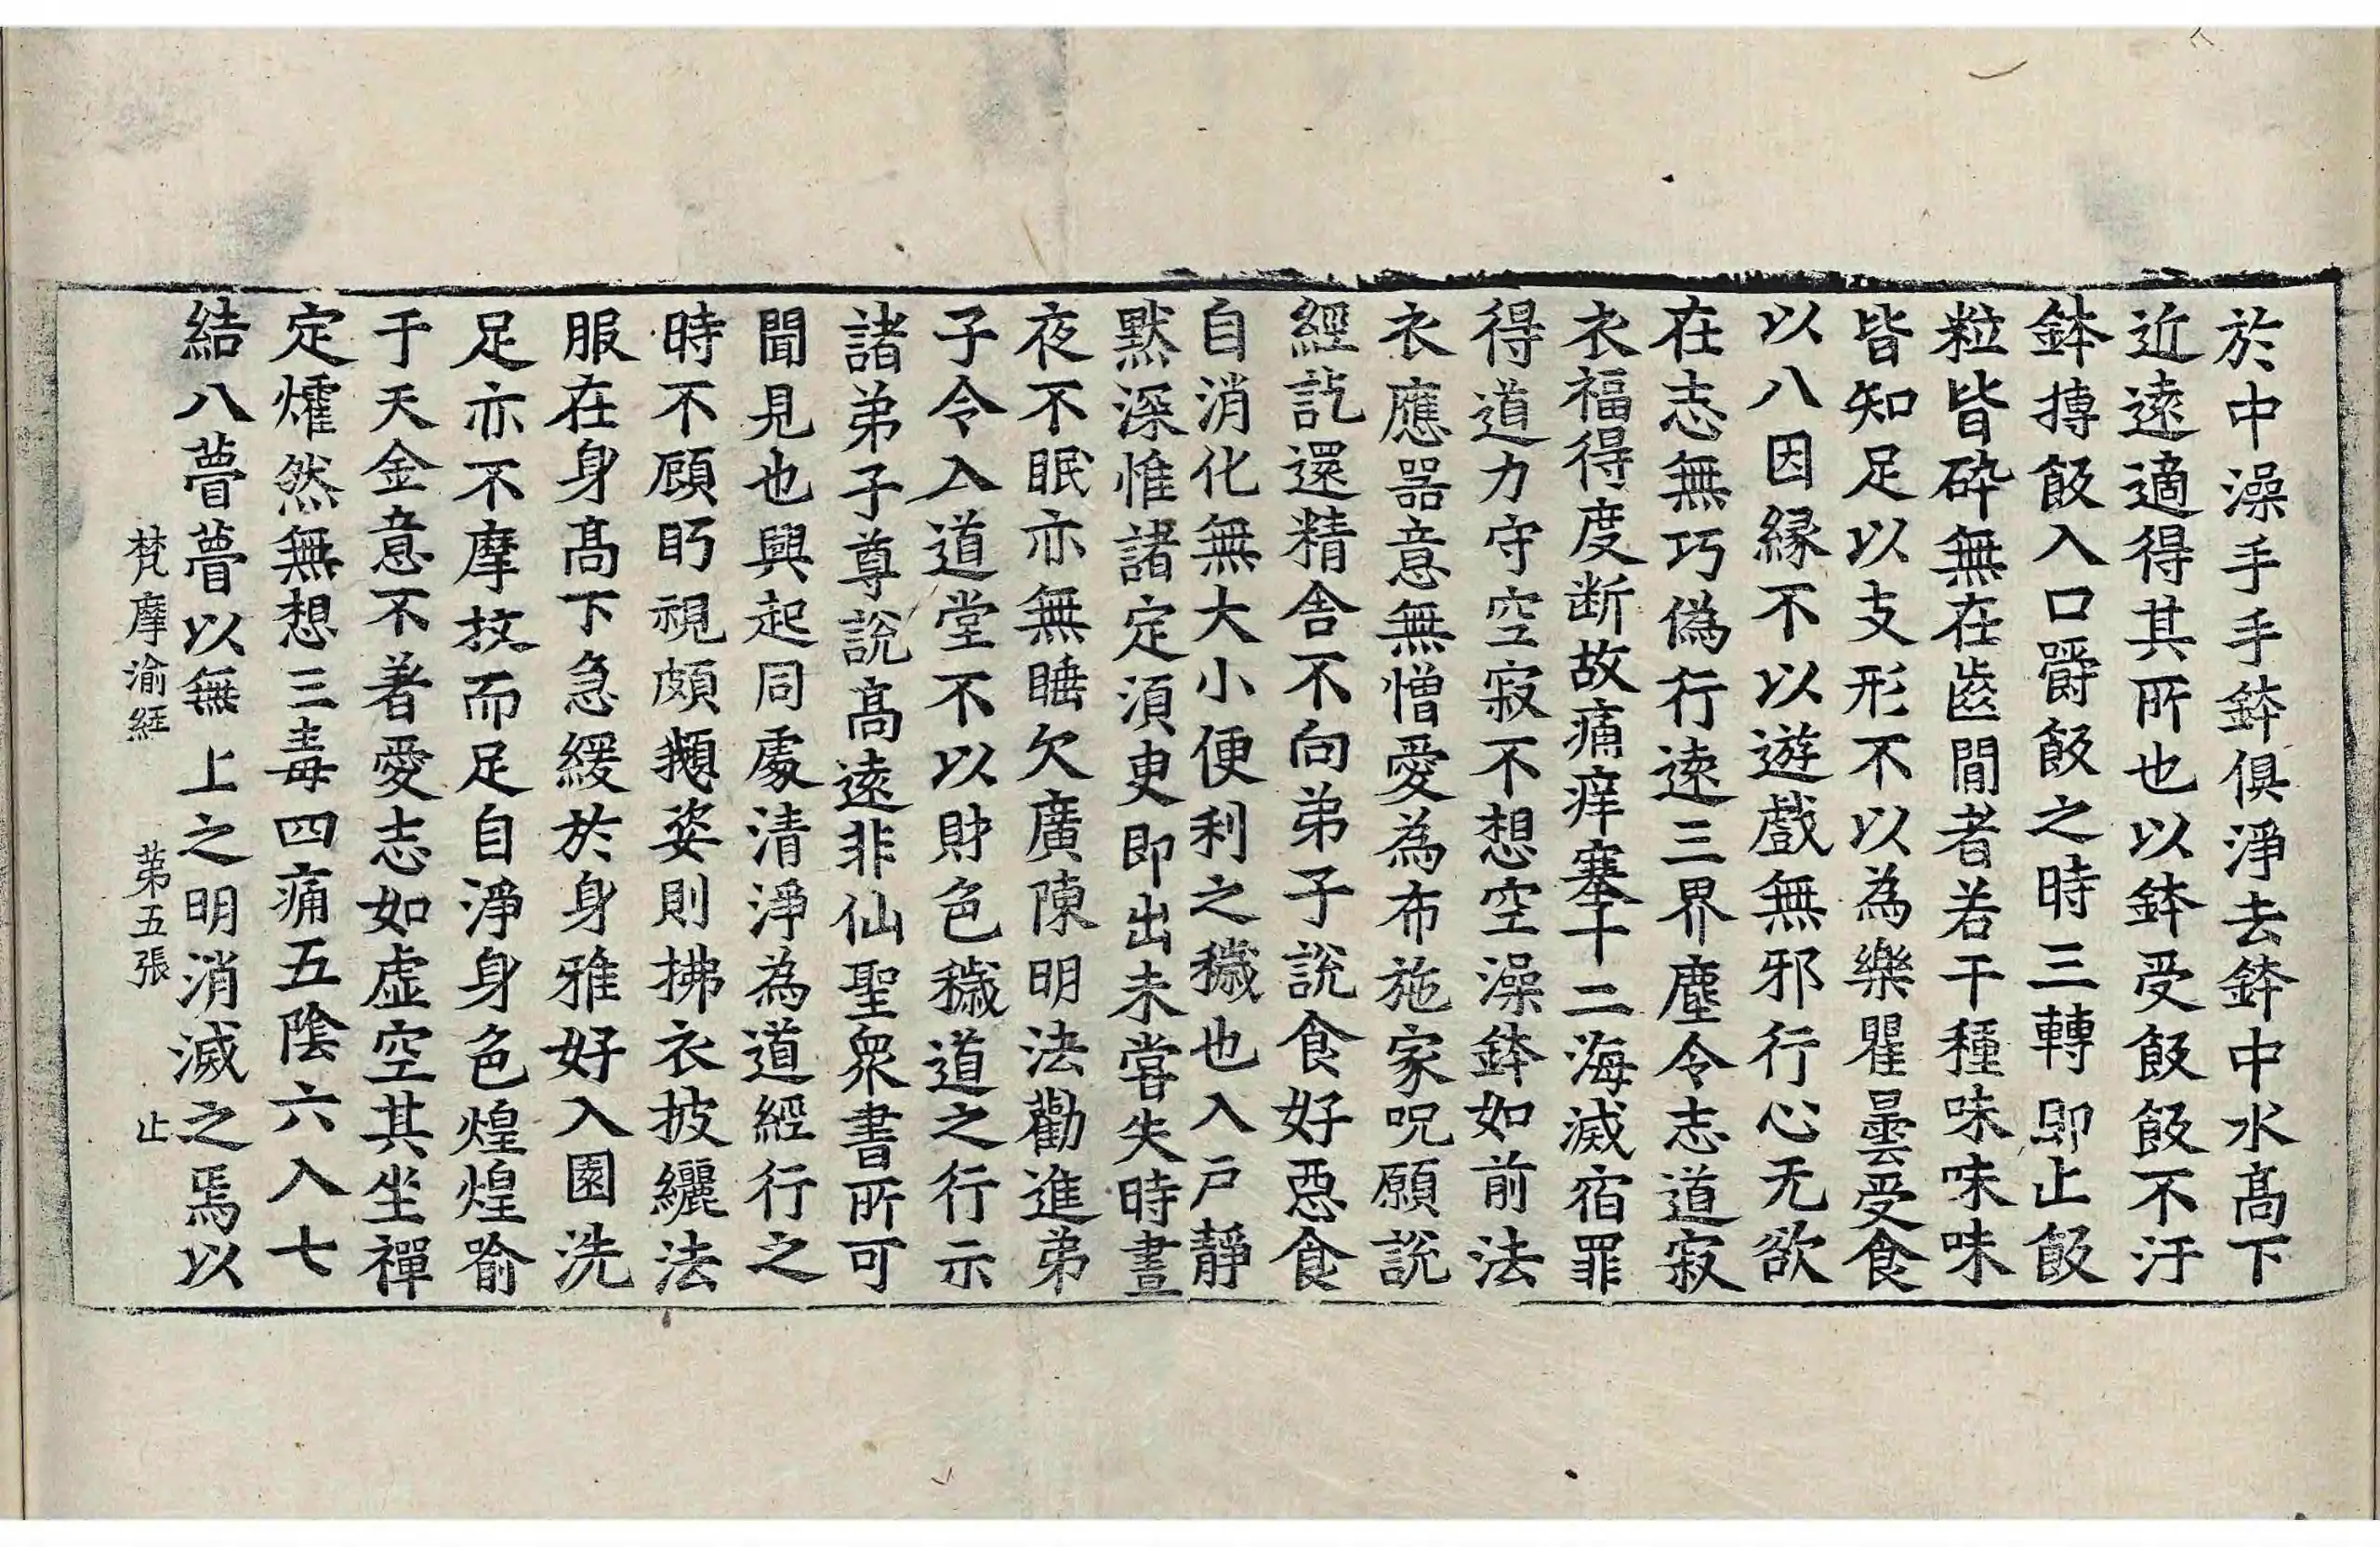 於中澡手手鉢俱淨去鉢中水髙下
近遠適得其所也以鉢受飯飯不汙
鉢摶飯入口嚼飯之時三轉即止飯
粒皆碎無在齒間者若干種味味味
皆知足以支形不以為樂瞿曇受食
以八因緣不以遊戲無邪行心无欲
在志無巧偽行遠三界塵令志道寂
衣福得度断故痛痒塞十二海滅宿罪
得道力守空寂不想空澡鉢如前法
衣應噐意無憎愛為布施家呪願說
經訖還精舍不向弟子說食好惡食
自消化無大小便利之穢也入戶靜
黙深惟諸定湏㬰即出未嘗失時晝
夜不眠亦無睡欠廣陳明法勸進弟
子令入道堂不以財色穢道之行示
諸弟子尊說髙遠非仙聖衆書所可
聞見也興起同處清淨為道經行之
時不顧眄視頗頪姿則拂衣披纚法
服在身髙下急緩於身雅好入園洗
足亦不摩抆而足自淨身色煌煌喻
于天金意不著愛志如虛空其坐禪
定㸌然無想三毒四痛五陰六入七
結八瞢瞢以無上之明消滅之焉以
梵摩渝経 第五張 止